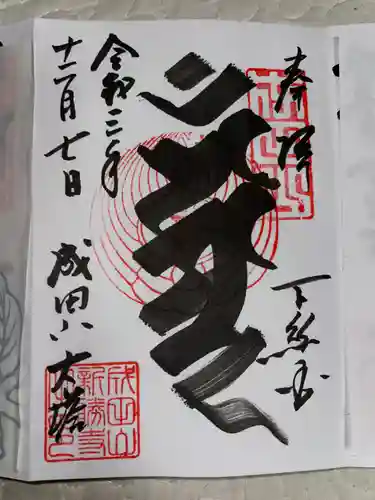 奉拝
下総国
令和二年
十二月七日
成田山
大塔
成田山
新勝寺